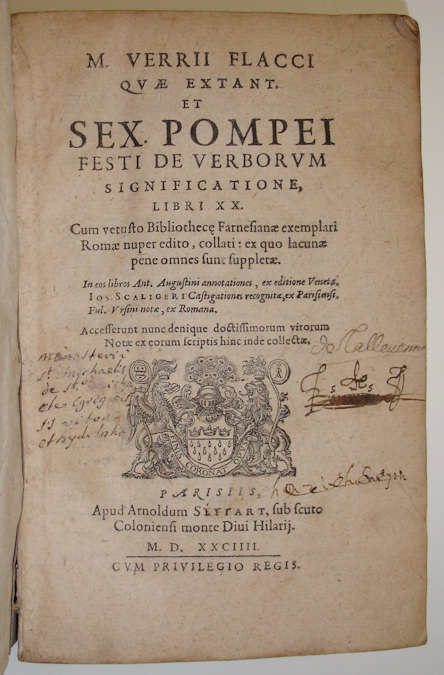 M. VERRII FLACCI
QVÆ EXTANT.
ET
SEX. POMPEI
FESTI DE VERBORVM
SIGNIFICATIONE,
LIBRI XX.
Cum vetusto Bibliothecę Farnesianæ exemplari
Romæ nuper edito, collati: ex quo lacunæ
pene omnes sunt suppletæ.
In eos libros Ant. Augustini annotationes, ex editione Veneta,
IOS. SCALIGERI Castigationes recognitæ, ex Parisiensi,
Ful. Vrsini notæ, ex Romana.
Accesserunt nunc denique doctissimorum virorum
Notæ ex eorum scriptis hinc inde collectæ.
CORONAT
PARISIIS,
Apud Arnoldum SITTART, sub scuto
Coloniensi monte Diui Hilarij.
M. D. XXCIIII.
CVM PRIVILEGIO REGIS.